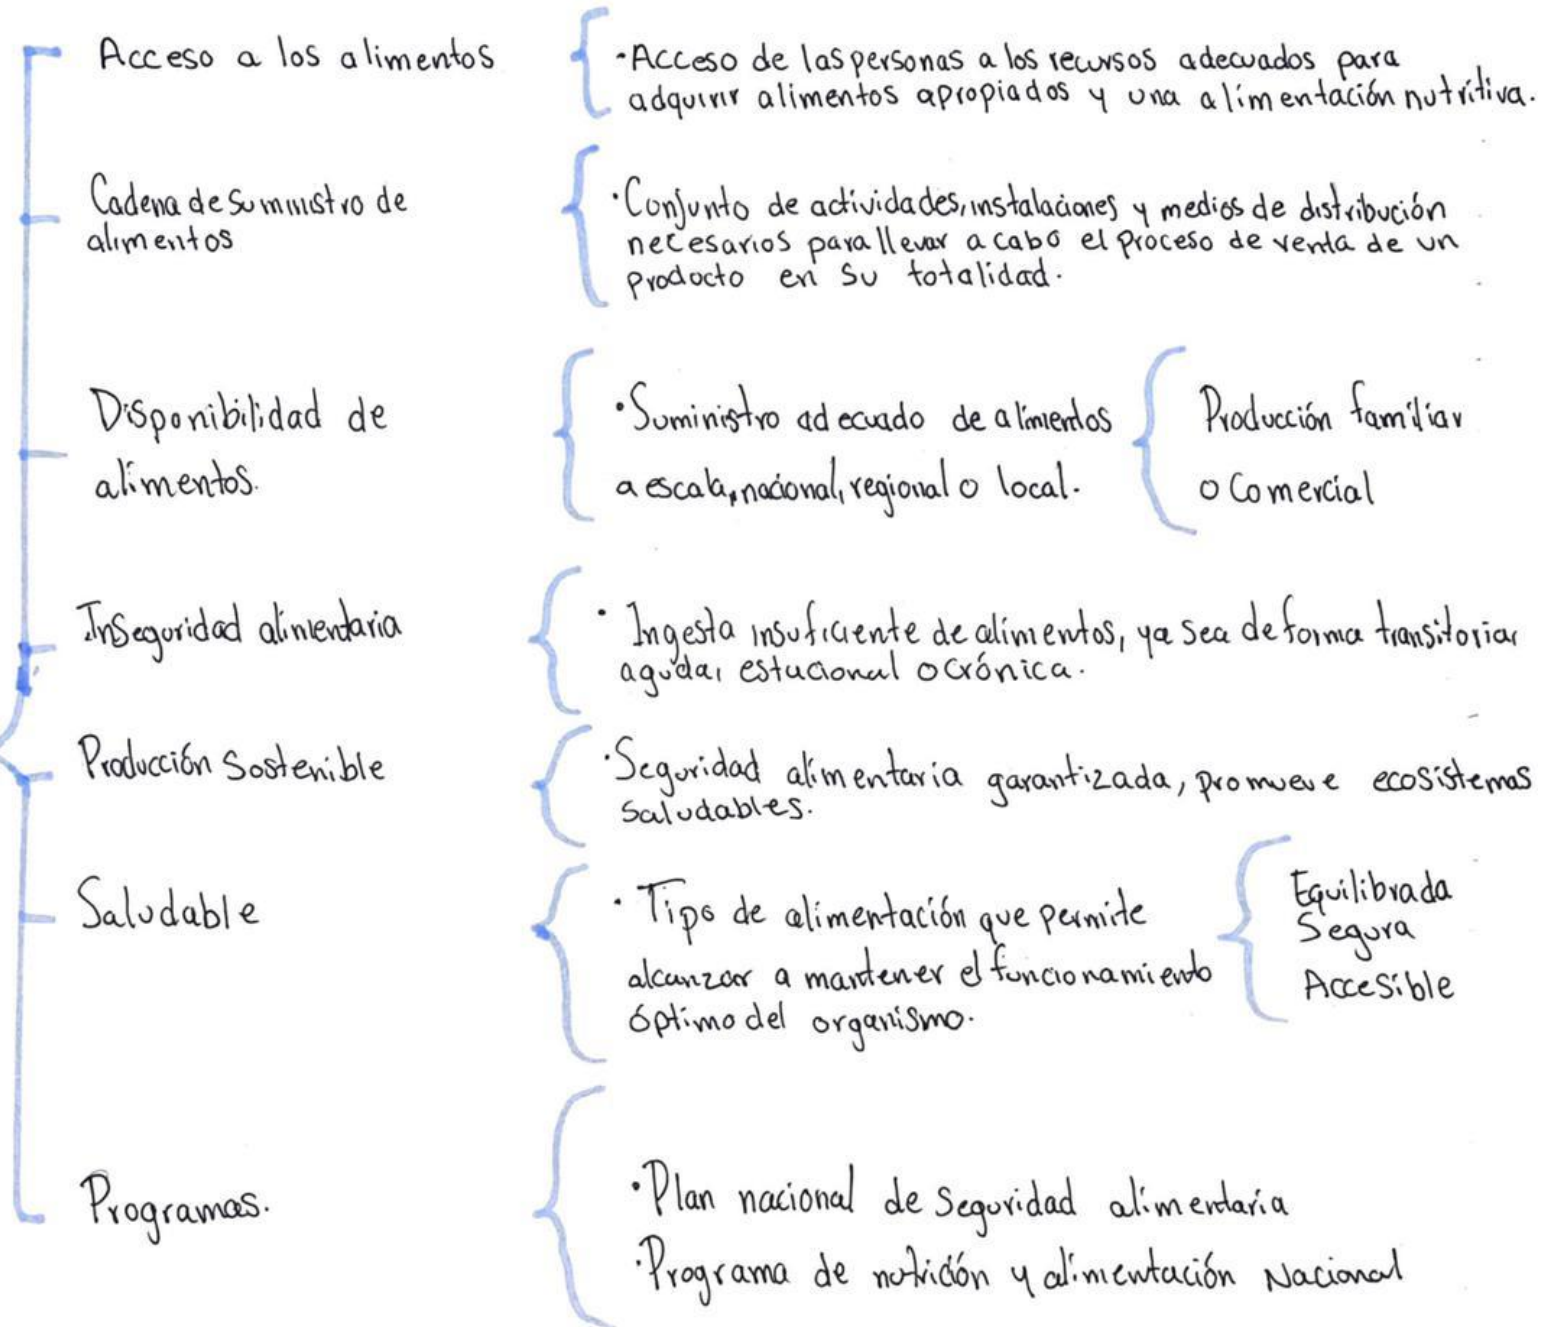 Acceso a los alimentos
·Acceso de las personas a los recursos adecuados para
adquirir alimentos apropiados y una alimentación nutritiva.
Cadena de Suministro de
alimentos
·Conjunto de actividades, instalaciones y medios de distribución
necesarios para llevar a cabo el proceso de venta de un
producto en su totalidad.
Disponibilidad de
alimentos.
·Suministro adecuado de alimentos
a escala, nacional, regional o local.
Producción familiar
o Comercial
Inseguridad alimentaria
· Ingesta insuficiente de alimentos, ya sea de forma transitoria,
aguda, estacional o crónica.
Producción Sostenible
·Seguridad alimentaria garantizada, promueve ecosistemas
saludables.
Saludable
· Tipo de alimentación que permite
alcanzar a mantener el funcionamiento
óptimo del organismo.
Equilibrada
Segura
Accesible
Programas.
·Plan nacional de Seguridad alimentaria
·Programa de nutrición y alimentación Nacional